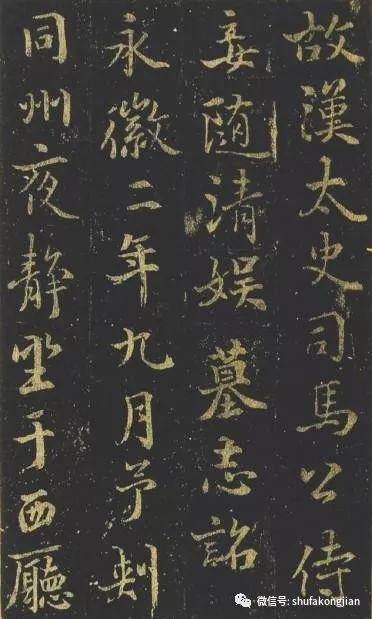 故漢太史司馬公侍
妾随清娱墓志銘
永徽二年九月予刺
同州夜静坐于西廳
微信号: shufakongjian